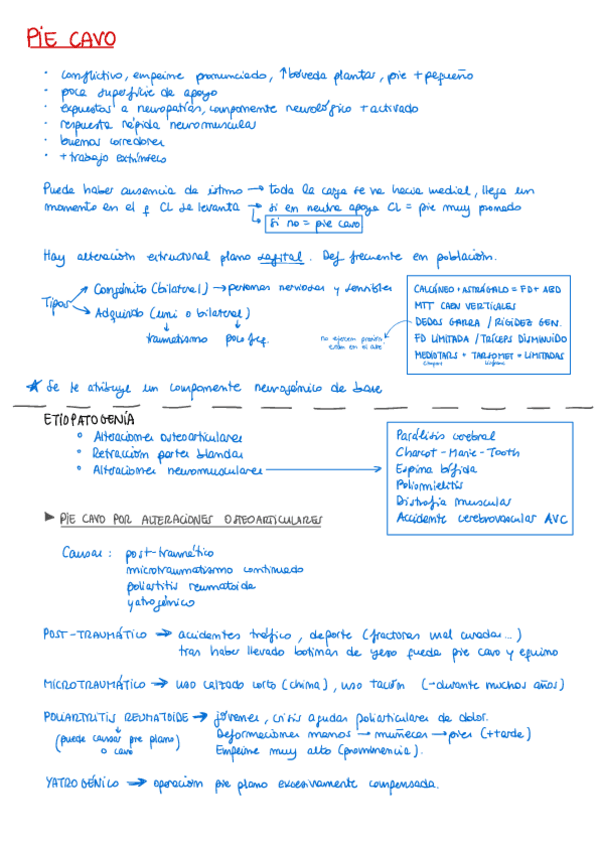 PIE CAVO
· conflictivo, empeine pronunciado, ↑ bóveda plantar, pie + pequeño
· poca superficie de apoyo
· expuestos a neuropatías, componente neurológico + activado
· respuesta rápida neuromuscular
· buenos corredores
· + trabajo extrínseco
Puede haber ausencia de istmo → toda la carga se va hacia medial, llega un
momento en el q CL se levanta → si en neutra apoya CL = pie muy pronado
↳ si no = pie cavo
Hay alteración estructural plano sagital. Def frecuente en población.
Tipos
→ Congénito (bilateral) → personas nerviosas y sensibles
→ Adquirido (uni o bilateral)
traumatismo poco frq.
CALCÁNEO + ASTRÁGALO = FD + ABD
MTT CAEN VERTICALES
DEDOS GARRA / RIGIDEZ GEN.
no ejercen presión
están en el aire
FD LIMITADA / TRÍCEPS DISMINUIDO
MEDIOTARS + TARSOMET = LIMITADAS
Chopart Lisfranc
★ Se le atribuye un componente neurogénico de base
ETIOPATOGENÍA
○ Alteraciones osteoarticulares
○ Retracción partes blandas
○ Alteraciones neuromusculares →
Parálisis cerebral
Charcot-Marie-Tooth
Espina bífida
Poliomielitis
Distrofia muscular
Accidente cerebrovascular AVC
► PIE CAVO POR ALTERACIONES OSTEOARTICULARES
Causas: post-traumático
microtraumatismo continuado
poliartitis reumatoide
yatrogénico
POST-TRAUMÁTICO → accidentes tráfico, deporte (fracturas mal curadas...)
tras haber llevado botinas de yeso queda pie cavo y equino
MICROTRAUMÁTICO → uso calzado corto (china), uso tacón (→ durante muchos años)
POLIARTRITIS REUMATOIDE → jóvenes, crisis agudas poliarticulares de dolor.
(puede causar pie plano)
o cavo
Deformaciones manos → muñecas → pies (+ tarde)
Empeine muy alto (prominencia).
YATROGÉNICO → operación pie plano excesivamente compensada.